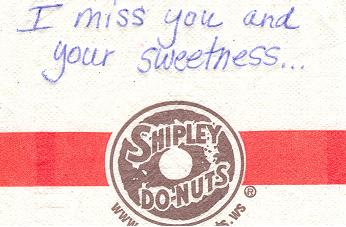 I miss you and
your sweetness...
SHIPLEY
DO-NUTS
®
www.